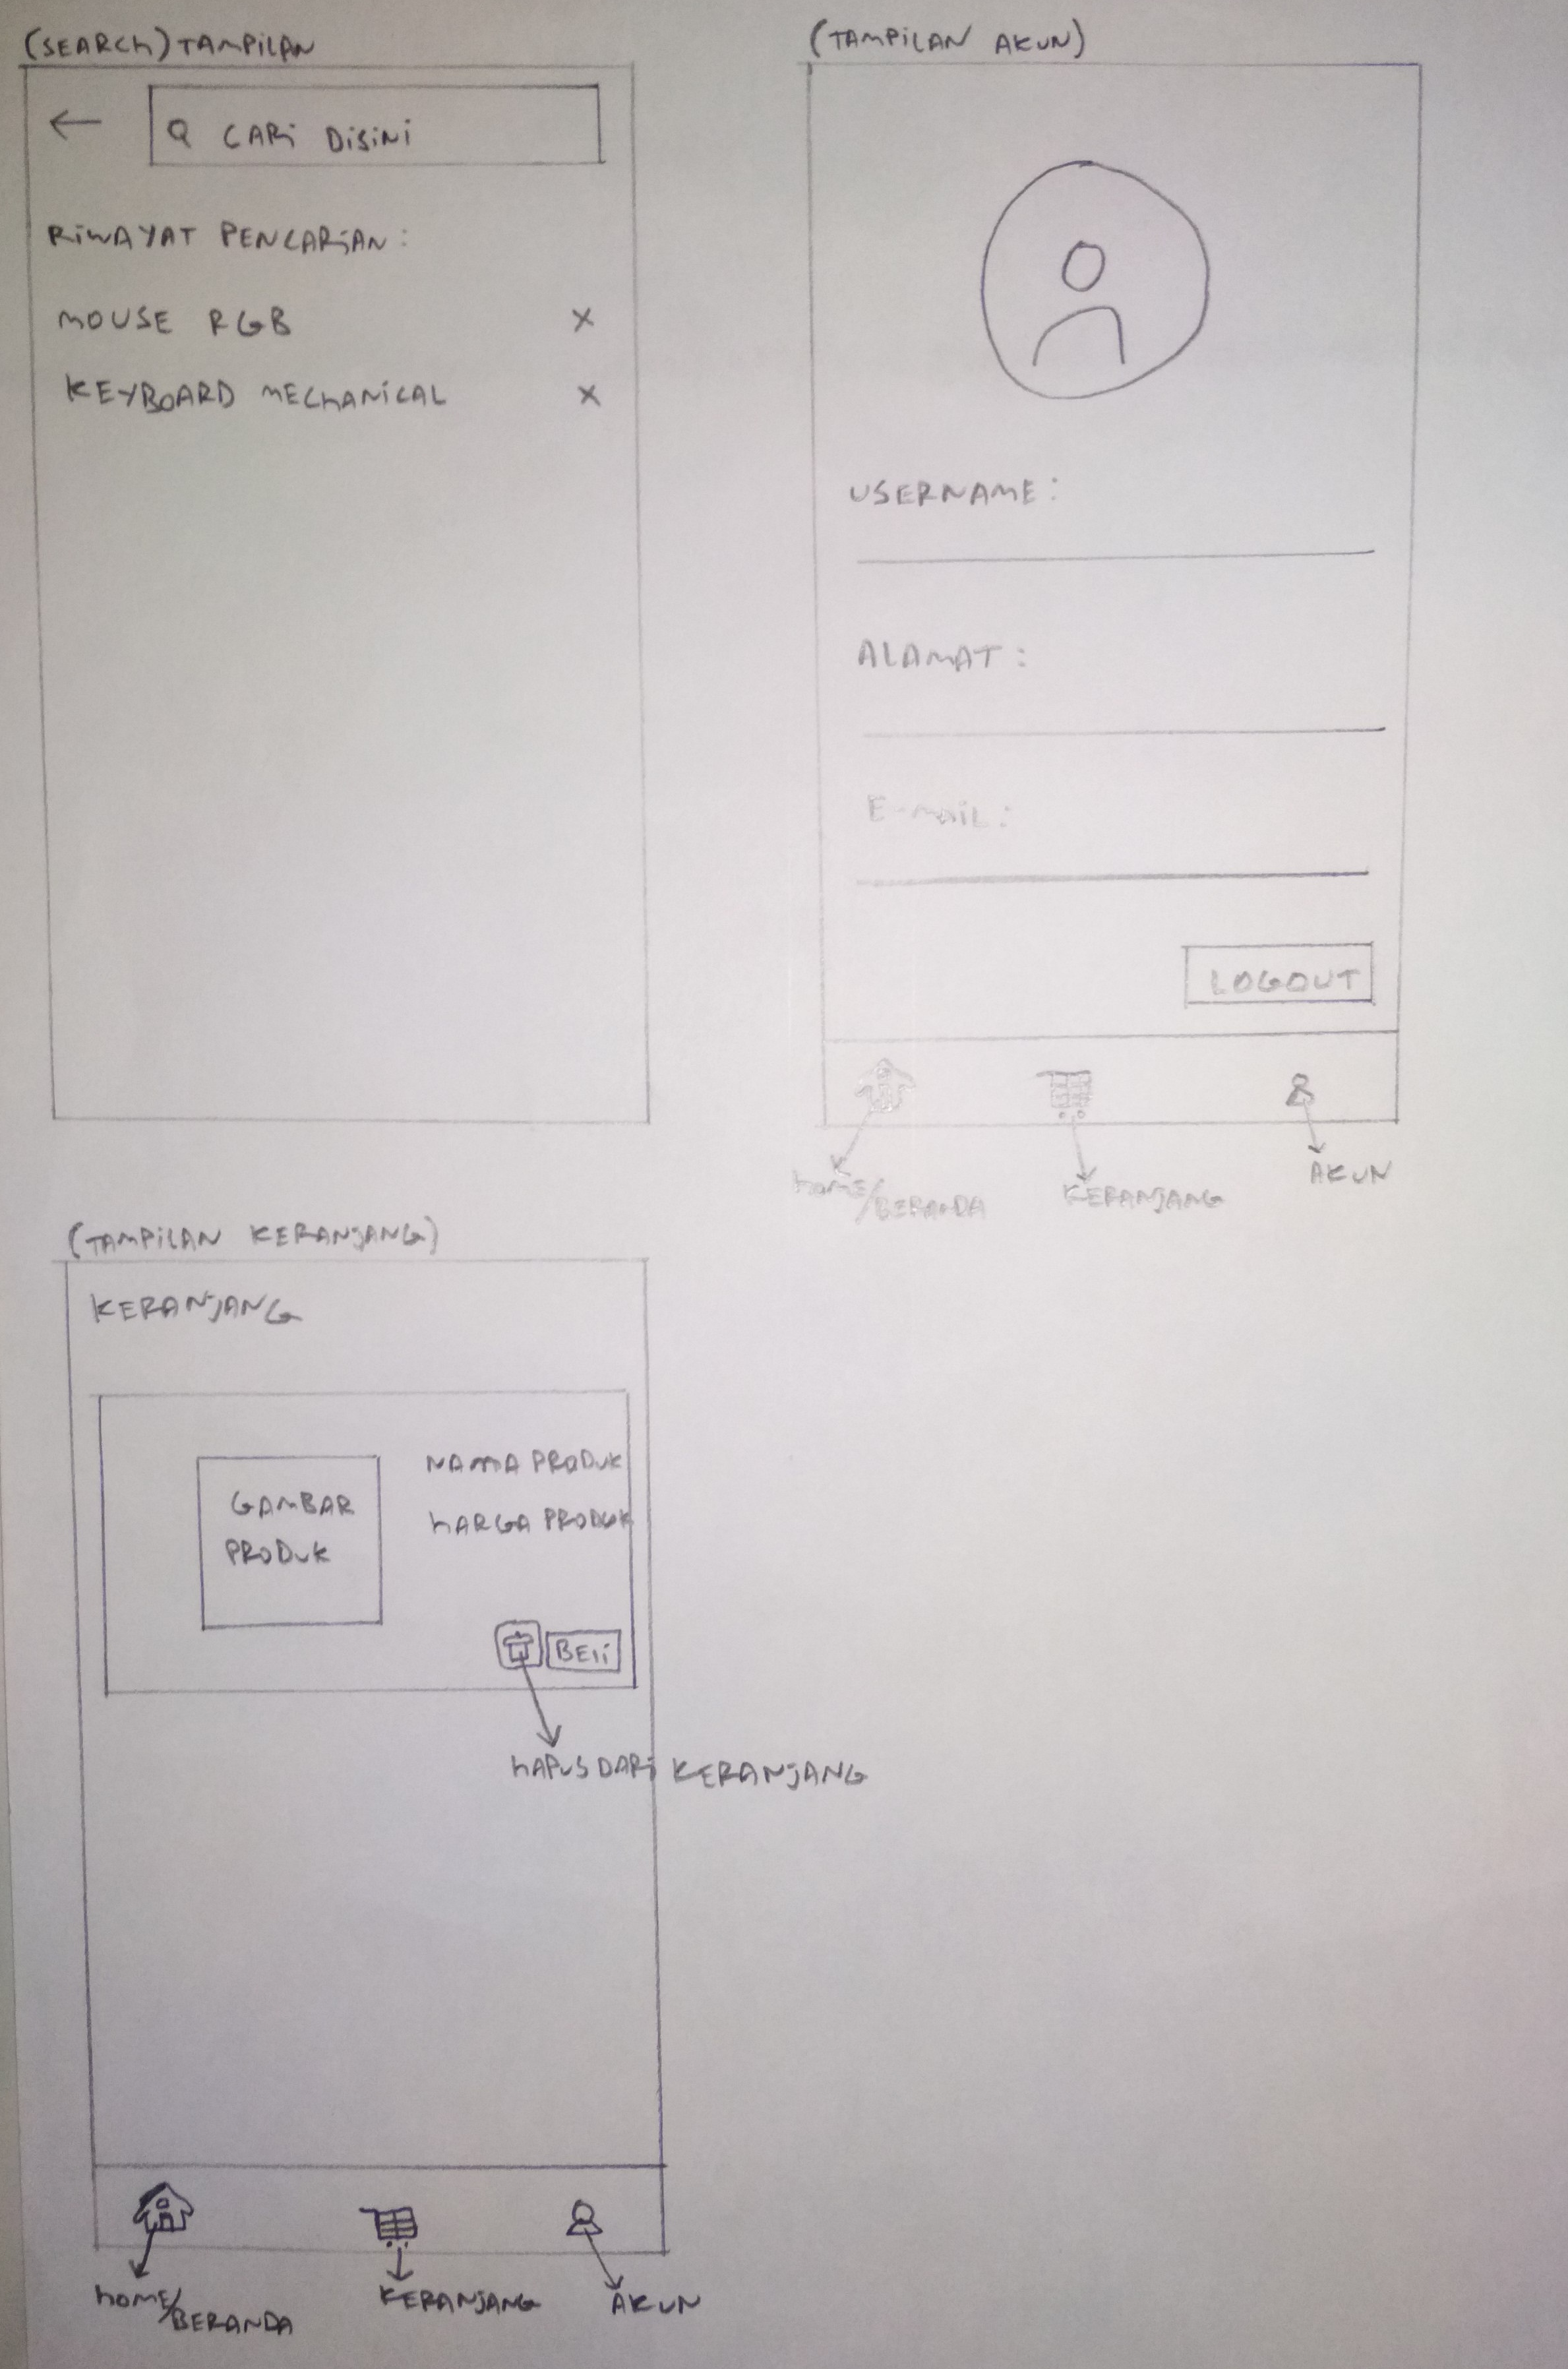 (SEARCH) TAMPILAN
CARI DISINI
RIWAYAT PENCARIAN :
MOUSE RGB X
KEYBOARD MECHANICAL X
(TAMPILAN AKUN)
USERNAME :
ALAMAT :
E-MAIL :
LOGOUT
HOME/BERANDA
KERANJANG
AKUN
(TAMPILAN KERANJANG)
KERANJANG
GAMBAR
PRODUK
NAMA PRODUK
HARGA PRODUK
BELI
HAPUS DARI KERANJANG
HOME/BERANDA
KERANJANG
AKUN